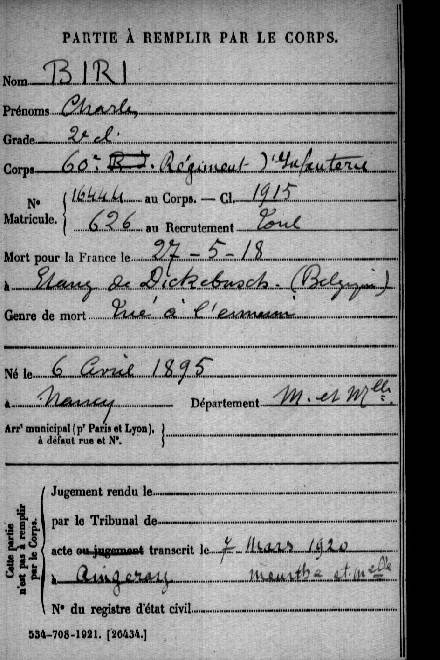 PARTIE À REMPLIR PAR LE CORPS.
Nom BIRI
Prénoms Charles
Grade 2e cl.
Corps 60e R. I. Régiment d'Infanterie
N° Matricule. 16444 au Corps. — Cl. 1915
626 au Recrutement Toul
Mort pour la France le 27-5-18
à Etang de Dickebusch - (Belgique)
Genre de mort Tué à l'ennemi
Né le 6 Avril 1895
à Nancy Département M. et Mlle.
Arrt municipal (pr Paris et Lyon),
à défaut rue et N°.
Cette partie n'est pas à remplir par le Corps.
Jugement rendu le
par le Tribunal de
acte ou jugement transcrit le 7 Mars 1920
à Aingeray Meurthe et Melle
N° du registre d'état civil
534-708-1921. [26434.]